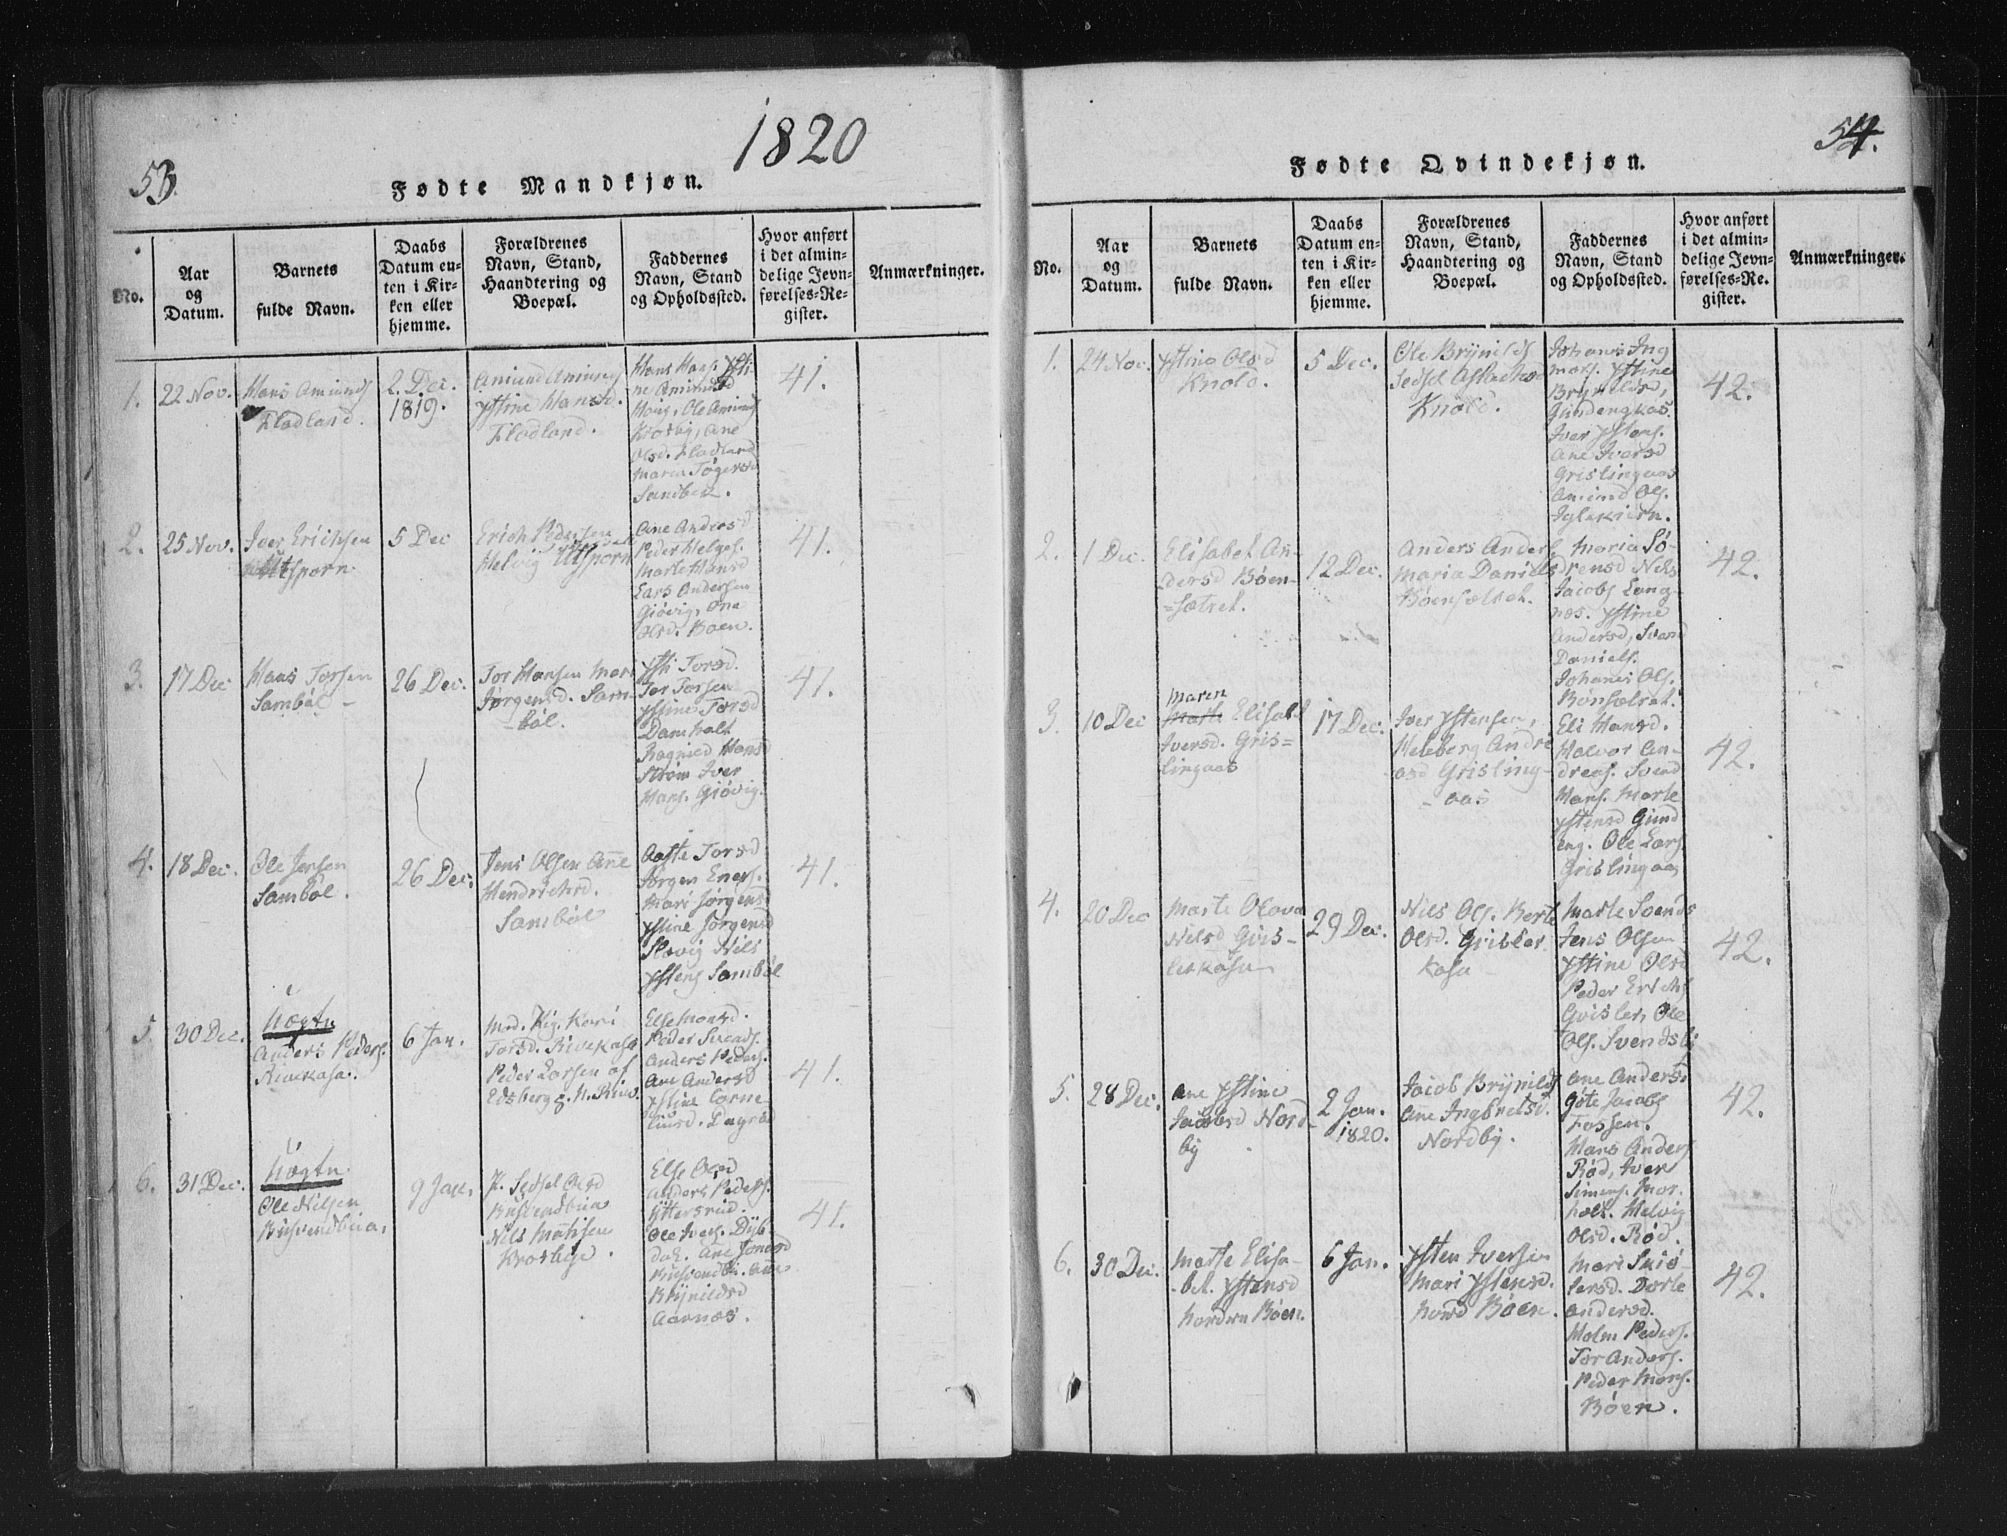 53.
1820
Fødte Mandkjøn.
No.
Aar
og
Datum.
Barnets
fulde Navn.
Daabs
Datum en-
ten i Kir-
ken eller
hjemme.
Forældrenes
Navn, Stand,
Haandtering og
Boepæl.
Faddernes
Navn, Stand
og Opholdssted.
Hvor anført
i det almin-
delige Jevn-
førelses-Re-
gister.
Anmærkninger.
1.
22 Nov.
Hans Amunds
Flodland.
2. Dec.
1819.
Amund Amunds
Ystine Hansd.
Flodland.
Hans Hans. Ysti
ne Amundsd
Hans, Ole Amunds
Krosby, Ane
Olsd. Flodland
Maren Tøgersd
Sandbek.
41.
2.
25 Nov.
Iver Erichsen
Utsporn.
5 Dec
Erich Pedersen
Helvig Utsporn
Ane Andersd
Peder Helges.
Marte Hansd
Lars Andersen
Giøvig, Ane
Olsd. Boen.
41.
3.
17 Dec
Hans Torsen
Sambøl
26 Dec.
Tor Hansen Mari
Jørgensd. Sam-
-bøl.
Ysti Torsd.
Tor Torsen
Ystine Torsd
Damholt
Ragnild Hansd
Strøm Iver
Hans. Giøvig.
41.
4.
18 Dec.
Ole Jensen
Sambøl.
26 Dec.
Jens Olsen Ane
Hendrichsd.
Sambøl
Aaste Torsd
Jørgen Eners.
Mari Jørgensd
Ystine Jørgensd
Slovig Nils
Ystens Sambøl
41.
5.
30 Dec.
Uægtn
Anders Peders.
Rivekasa.
6 Jan.
Kari
Torsd. Rivekasa
Peder Larsen af
Edsberg
Else Monsd.
Peder Svends.
Anders Peders.
Ane Andersd
Ystine Corne
liusd.
41.
6.
31 Dec.
Uægtn
Ole Nilsen
Busvendbua.
9 Jan.
P. Sedsel Olsd
Busvendbua
Nils Matisen
Else Olsd
Anders Peders.
Yttersrud.
Ole Ivers.
Ane Jonasd
Brynildsd
Aarnæs.
41.
54.
Fødte Qvindekjøn.
No.
Aar
og
Datum.
Barnets
fulde Navn.
Daabs
Datum en-
ten i Kir-
ken eller
hjemme.
Forældrenes
Navn, Stand,
Haandtering og
Boepæl.
Faddernes
Navn, Stand
og Opholdssted.
Hvor anført
i det almin-
delige Jevn-
førelses-Re-
gister.
Anmærkninger.
1.
24 Nov.
Ystina Olsd
Knold.
5 Dec.
Ole Brynilds
Sedsel Aslachsd
Knold.
Johanis Ing
mars. Ystine
Brynildsd,
Gundengkas.
Iver Ystens.
Ane Iversd
Grislingaas
Amund Ols.
42.
2.
1 Dec.
Elisabet An-
dersd Bøen-
=sætret.
12 Dec.
Anders Anders
Maria Daniels
Bøensætret.
Maria Sø-
drensd Nils
Jacobs Lang-
næs. Ystine
Andersd, Svend
Daniels.
Johanis Ols.
Bønsætret.
42.
3.
10 Dec
Maren
Marte Elisabet
Iversd. Gris=
lingaas
17 Dec.
Iver Ystensen,
Heleborg Andre
asd Grisling-
-aas
Eli Hansd.
Halvor An-
dreas. Svend
Hans. Marte
Ystensd Gund
eng. Ole Lars.
Grislingaas
42.
4.
20 Dec
Marte Olava
Nilsd Gris-
lerkasa
29 Dec.
Nils Ols. Berte
Olsd. Grisler
kasa
Marte Svends
Jens Olsen
Ystine Olsd
Peder Erichs
Grisler, Ole
Ols. Svendsby
42.
5.
28 Dec.
Ane Ystine
Jacobsd Nord-
by
2 Jan.
1820.
Jacob Brynilds
Ane Ingbretsd.
Nordby.
Ane Andersd
Gøte Jacobs
Fossen.
Hans Anders
Rød, Iver
Simens. Mor-
holt. Helvig
Olsd. Rød.
42.
6.
30 Dec.
Marte Elisa-
-bet. Ystensd
Nordren Bøen.
6 Jan.
Ysten Iversen
Mari Ystensd.
Nord Bøen.
Mari Sniø-
lersd. Dorte
Andersd.
Holm Peders.
Tor Anders.
Peder Mons.
Bøen.
42.